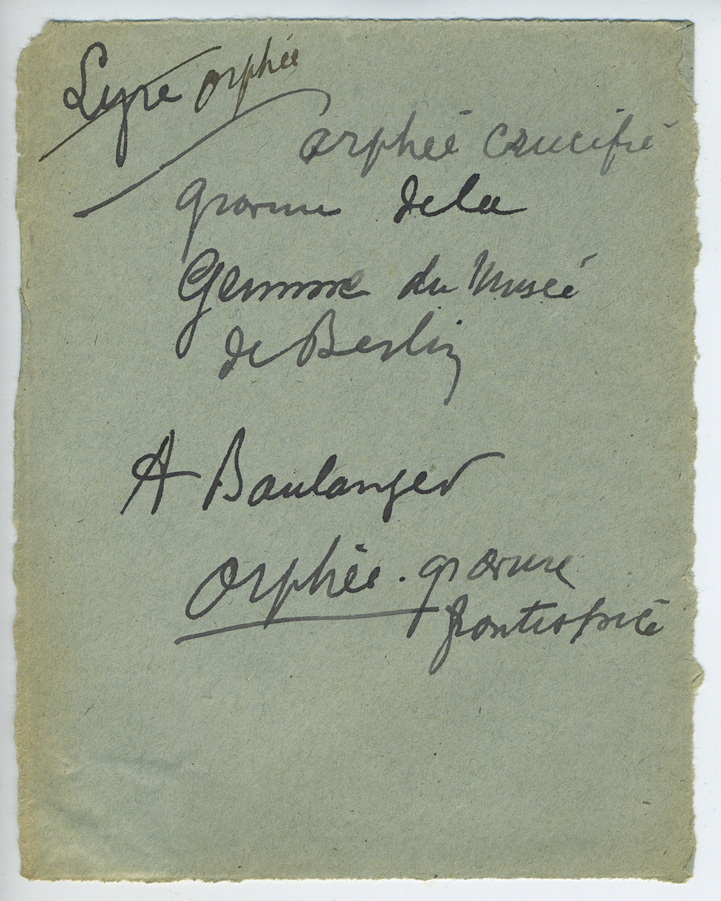 Lyre orphée
orphée crucifié
gravure de la
Gemme du Musée
de Berlin
A Boulanger
Orphée. gravure
frontispice